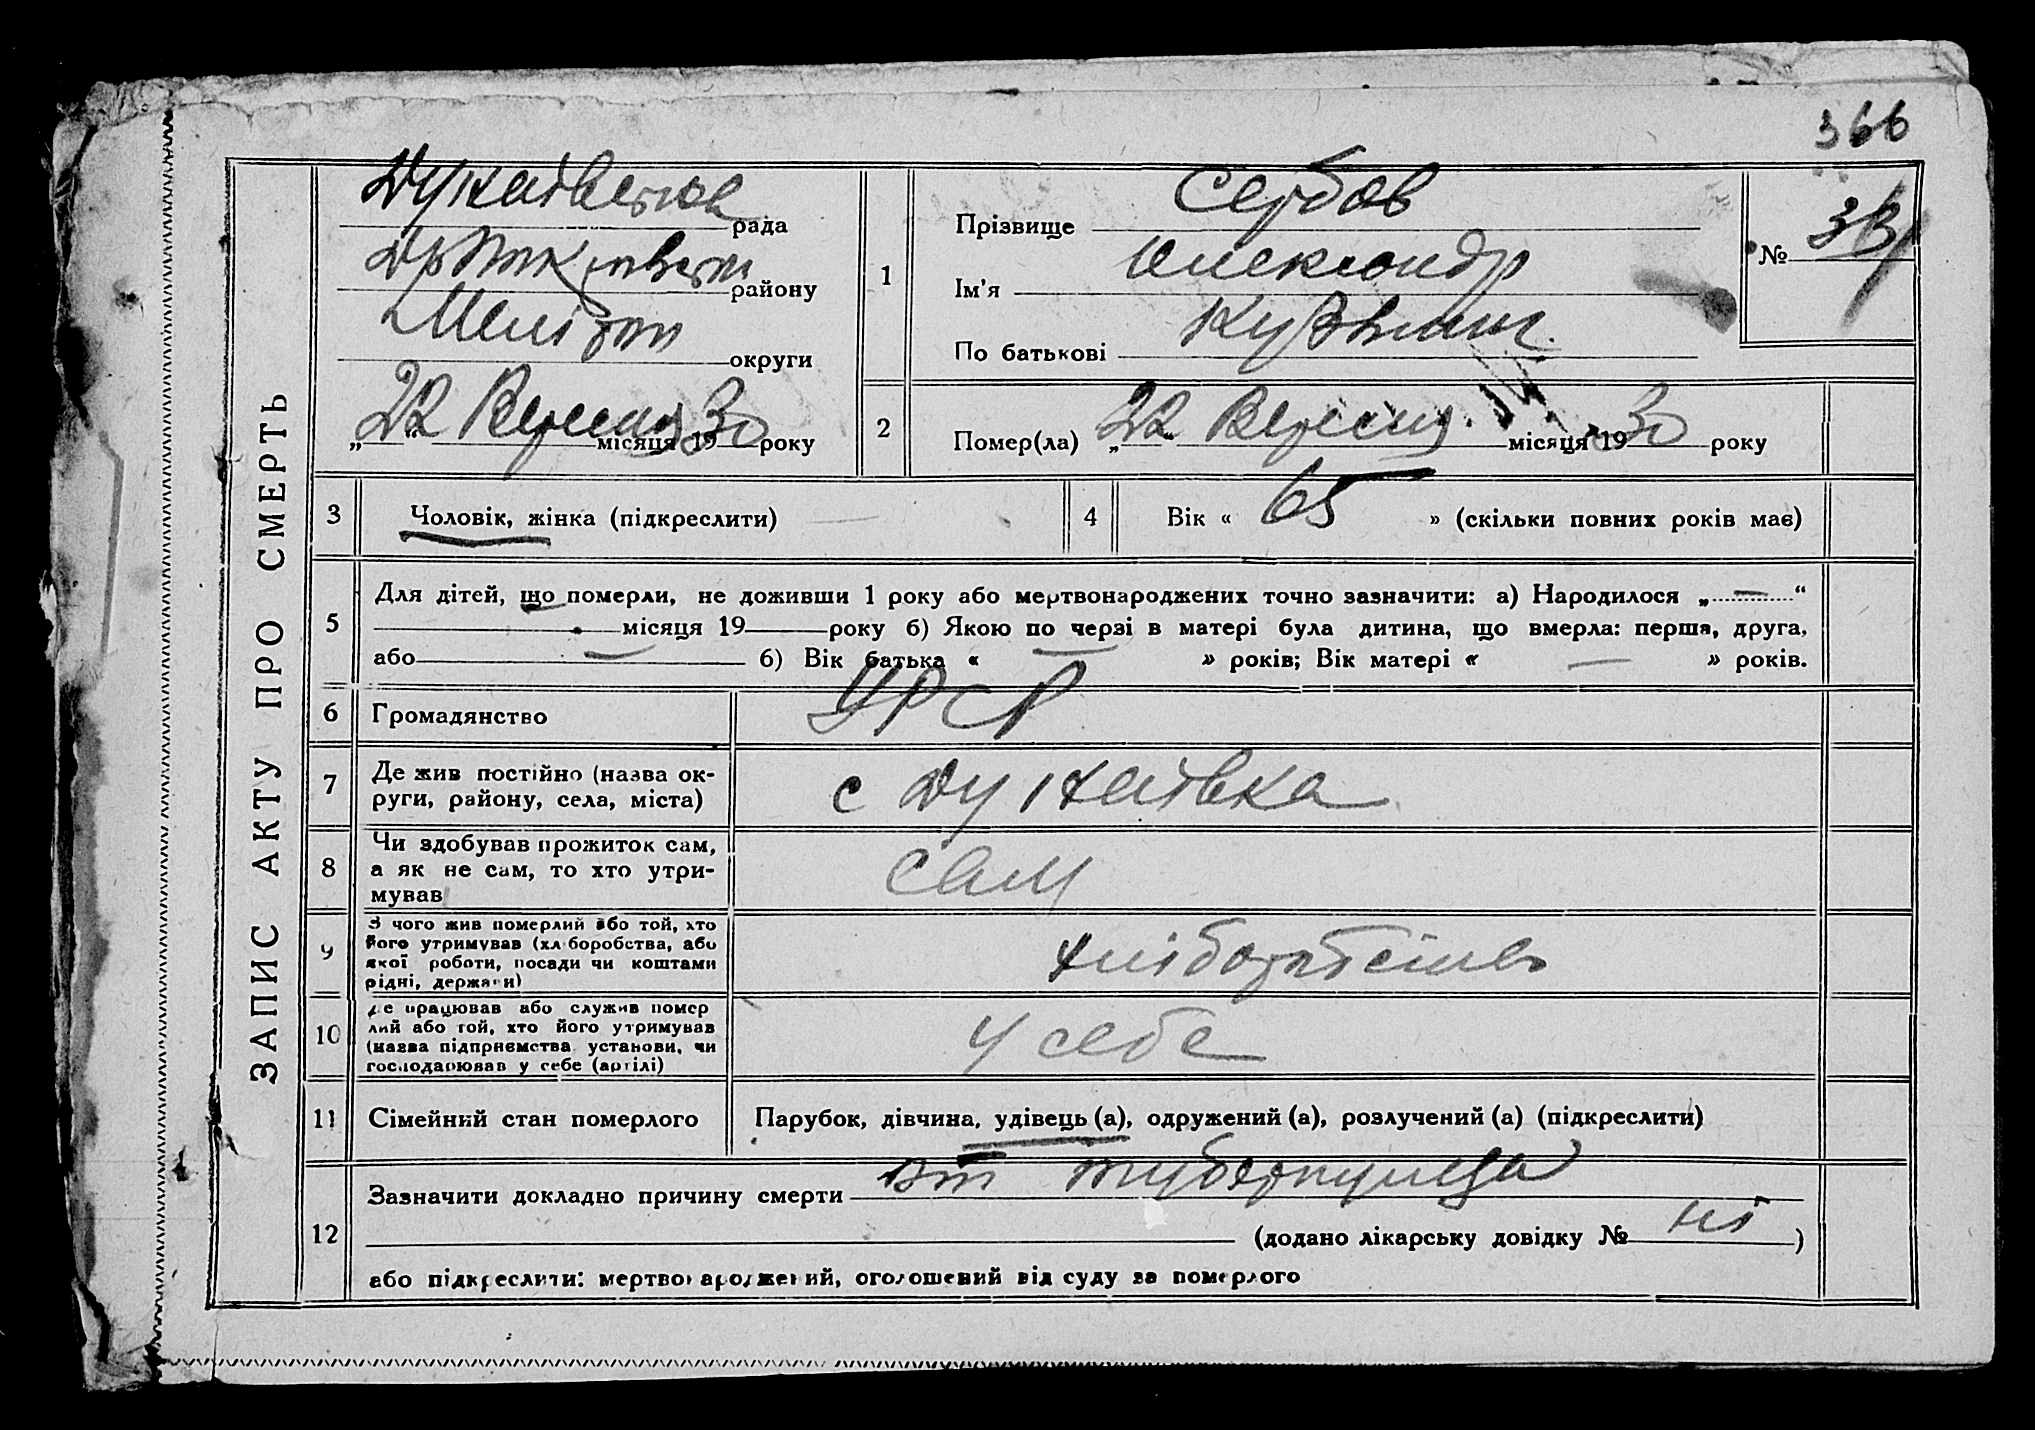 366
ЗАПИС АКТУ ПРО СМЕРТЬ
рада
району
Меліт округи
„22 Вересня місяця 1930 року
1
Прізвище Сербов
Ім'я Олександр
По батькові Кузьмич
№
2
Помер(ла) „22 Вересня місяця 1930 року
3
Чоловік, жінка (підкреслити)
4
Вік « 65 » (скільки повних років має)
5
Для дітей, що померли, не доживши 1 року або мертвонароджених точно зазначити: а) Народилося „ — “
місяця 19 року б) Якою по черзі в матері була дитина, що вмерла: перша, друга,
або — б) Вік батька « — » років; Вік матері « — » років.
6
Громадянство
УРСР
7
Де жив постійно (назва ок-
руги, району, села, міста)
с Дунаївка
8
Чи здобував прожиток сам,
а як не сам, то хто утри-
мував
сам
9
З чого жив померлий або той, хто
його утримував (хліборобства, або
якої роботи, посади чи коштами
рідні, держави)
хліборобство
10
Де працював або служив помер
лий або той, хто його утримував
(назва підприємства установи, чи
господарював у себе (артілі)
у себе
11
Сімейний стан померлого
Парубок, дівчина, удівець (а), одружений (а), розлучений (а) (підкреслити)
12
Зазначити докладно причину смерти от туберкульоза
(додано лікарську довідку № ні )
або підкреслити: мертвонароджений, оголошений від суду за померлого